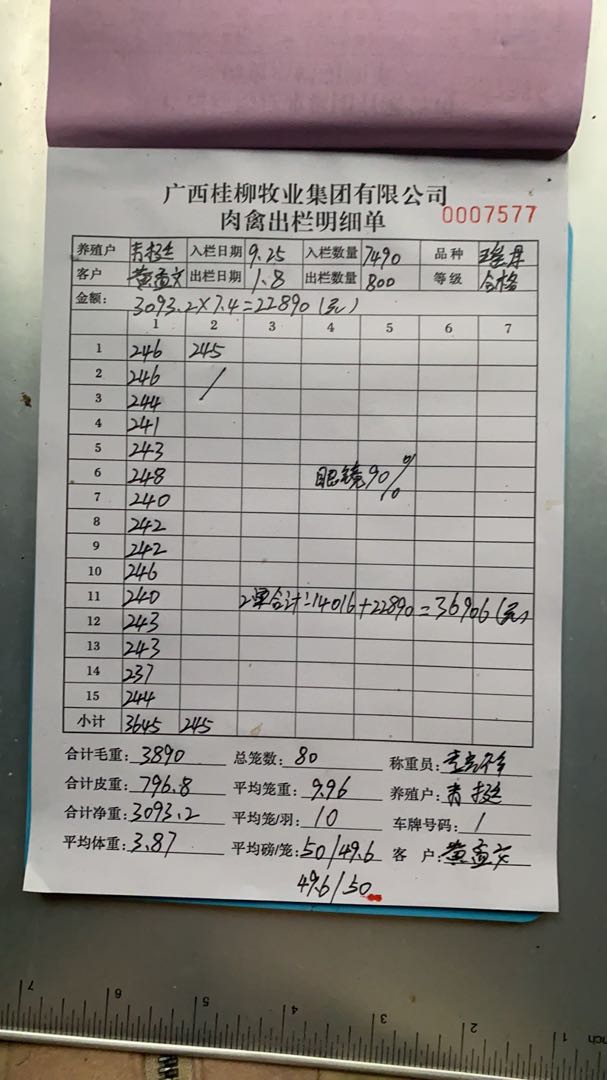 广西桂柳牧业集团有限公司
肉禽出栏明细单 0007577
养殖户 入栏日期 9.25 入栏数量 7490 品种
客户 黄道文 出栏日期 1.8 出栏数量 800 等级 合格
金额: 3093.2×7.4=22890(元)
1 2 3 4 5 6 7
1 246 245
2 246 /
3 244
4 241
5 243
6 248 眼镜90%
7 240 %
8 242
9 242
10 246
11 240 2单合计:14016+22890=36906(元)
12 243
13 243
14 237
15 244
小计 3645 245
合计毛重: 3890 总笼数: 80 称重员:
合计皮重: 796.8 平均笼重: 9.96 养殖户:
合计净重: 3093.2 平均笼/羽: 10 车牌号码: 1
平均体重: 3.87 平均磅/笼: 50/49.6 客户: 黄道文
49.6/50
7 6 5 4 3 2 1 inch